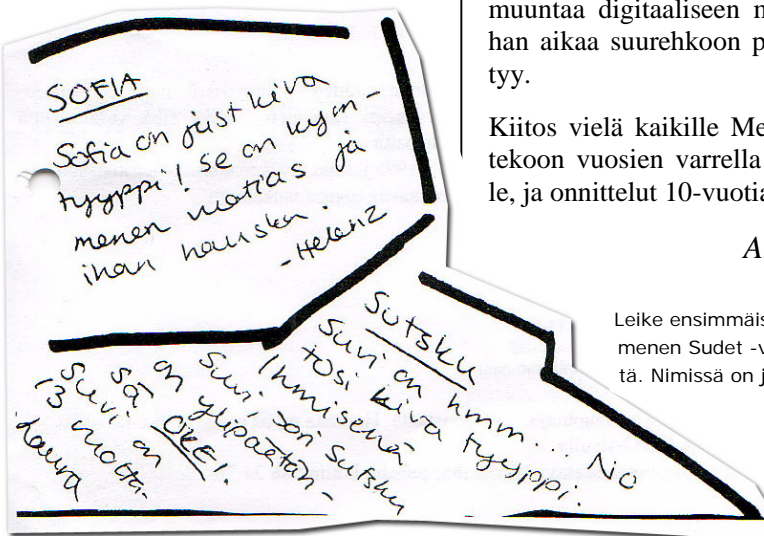 SOFIA
Sofia on just kiva
tyyyppi! se on kym-
menen vuotias ja
ihan hauska.
Sutsku
Suvi on hmm... No
tosi kiva tyyyppi.
Ihmisenä
Suvi sori Sutsku
on ylipäätän-
sä OKEI.
Suvi on
13 vuotta-
Laura
muuntaa digitaaliseen
han aikaa suurehkoon
tyy.
Kiitos vielä kaikille
tekoon vuosien varrella
le, ja onnittelut
Leike
menen Sudet
tä. Nimissä on